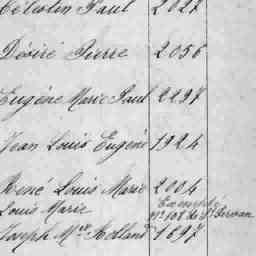 Célestin Paul 2027
Désiré Pierre 2056
Eugène Marie Paul 2297
Jean Louis Eugène 1924
René Louis Marie 2004
Exempté
Louis Marie n° 1086 St Servan
Joseph Mie Rolland 1697